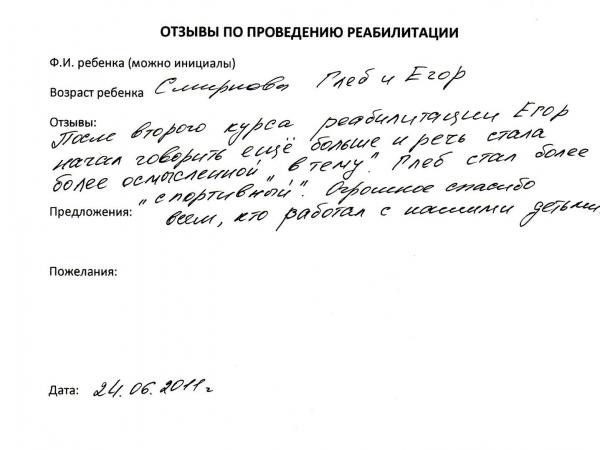 ОТЗЫВЫ ПО ПРОВЕДЕНИЮ РЕАБИЛИТАЦИИ
Ф.И. ребенка (можно инициалы)
Возраст ребенка Смирновы Глеб и Егор
Отзывы:
После второго курса реабилитации Егор
начал говорить ещё больше и речь стала
более осмысленной „в тему". Глеб стал более
„спортивный". Огромное спасибо
Предложения: всем, кто работал с нашими детьми.
Пожелания:
Дата: 24.06.2011г